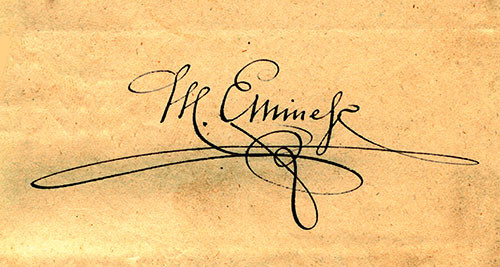 M. Eminescu